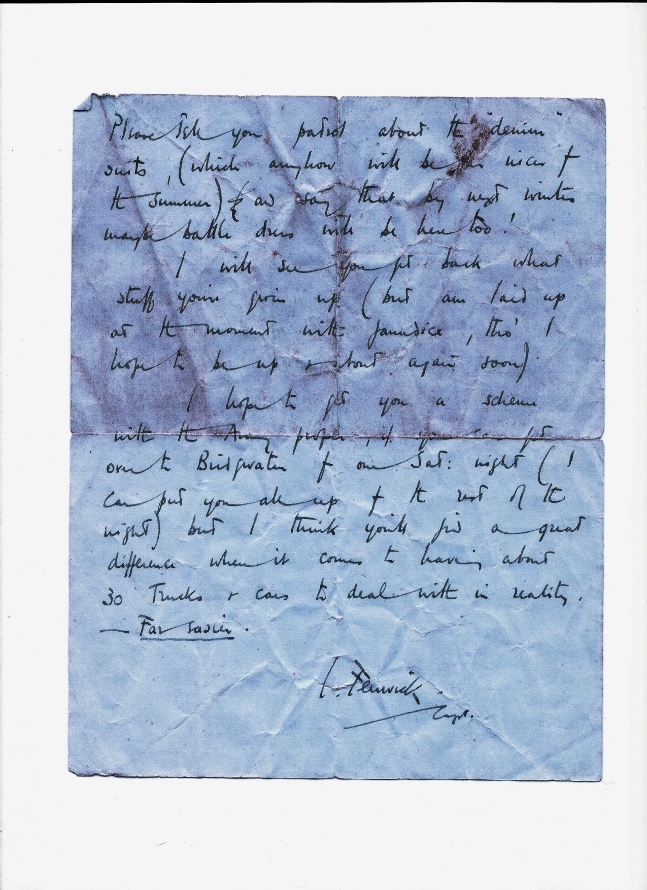 Please tell your patrol about the "denim"
suits, (which anyhow will be nicer f
the summer) & say that by next winter
maybe battle dress will be here too!
I will see you get back what
stuff you're givin up (but am laid up
at the moment with jaundice, tho' I
hope to be up & about again soon).
I hope to get you a scheme
with the Army proper, if you can get
over to Bridgwater f one Sat: night (I
can put you all up f the rest of the
night) but I think you'll find a great
difference when it comes to having about
30 Trucks & cars to deal with in reality.
— Far easier.
Fenwick
Capt.